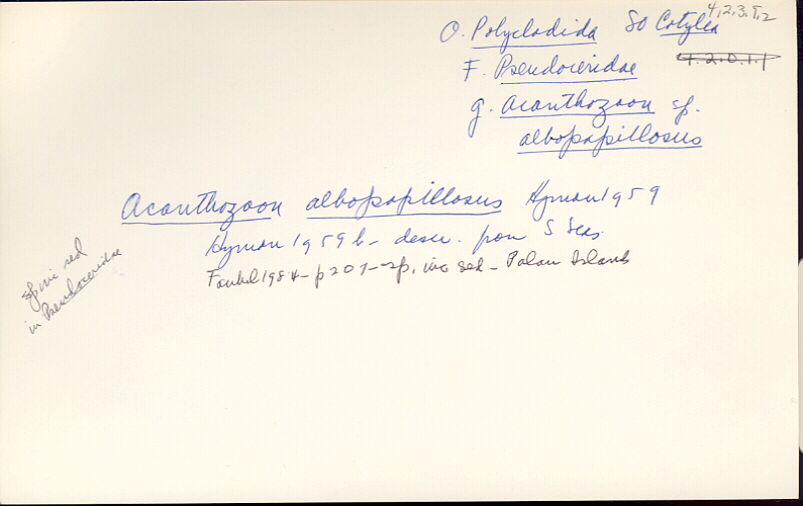 4,2,3,9,2
O. Polycladida SO Cotylea
F. Pseudoceridae 4.2.0.1.1
g. Acanthozoon sp.
albopapillosus
Acanthozoon albopapillosus Hyman 1959
Hyman 1959b - descr. from S Seas
Faubel 1984 - p 207 - sp. inc sed - Palau Islands
sp inc sed
in Pseudoceridae